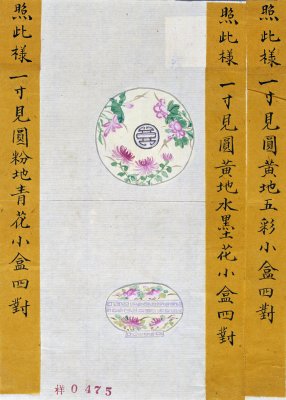 照此樣一寸見圓黃地五彩小盒四對
照此樣一寸見圓黃地水墨花小盒四對
照此樣一寸見圓粉地青花小盒四對
样0475